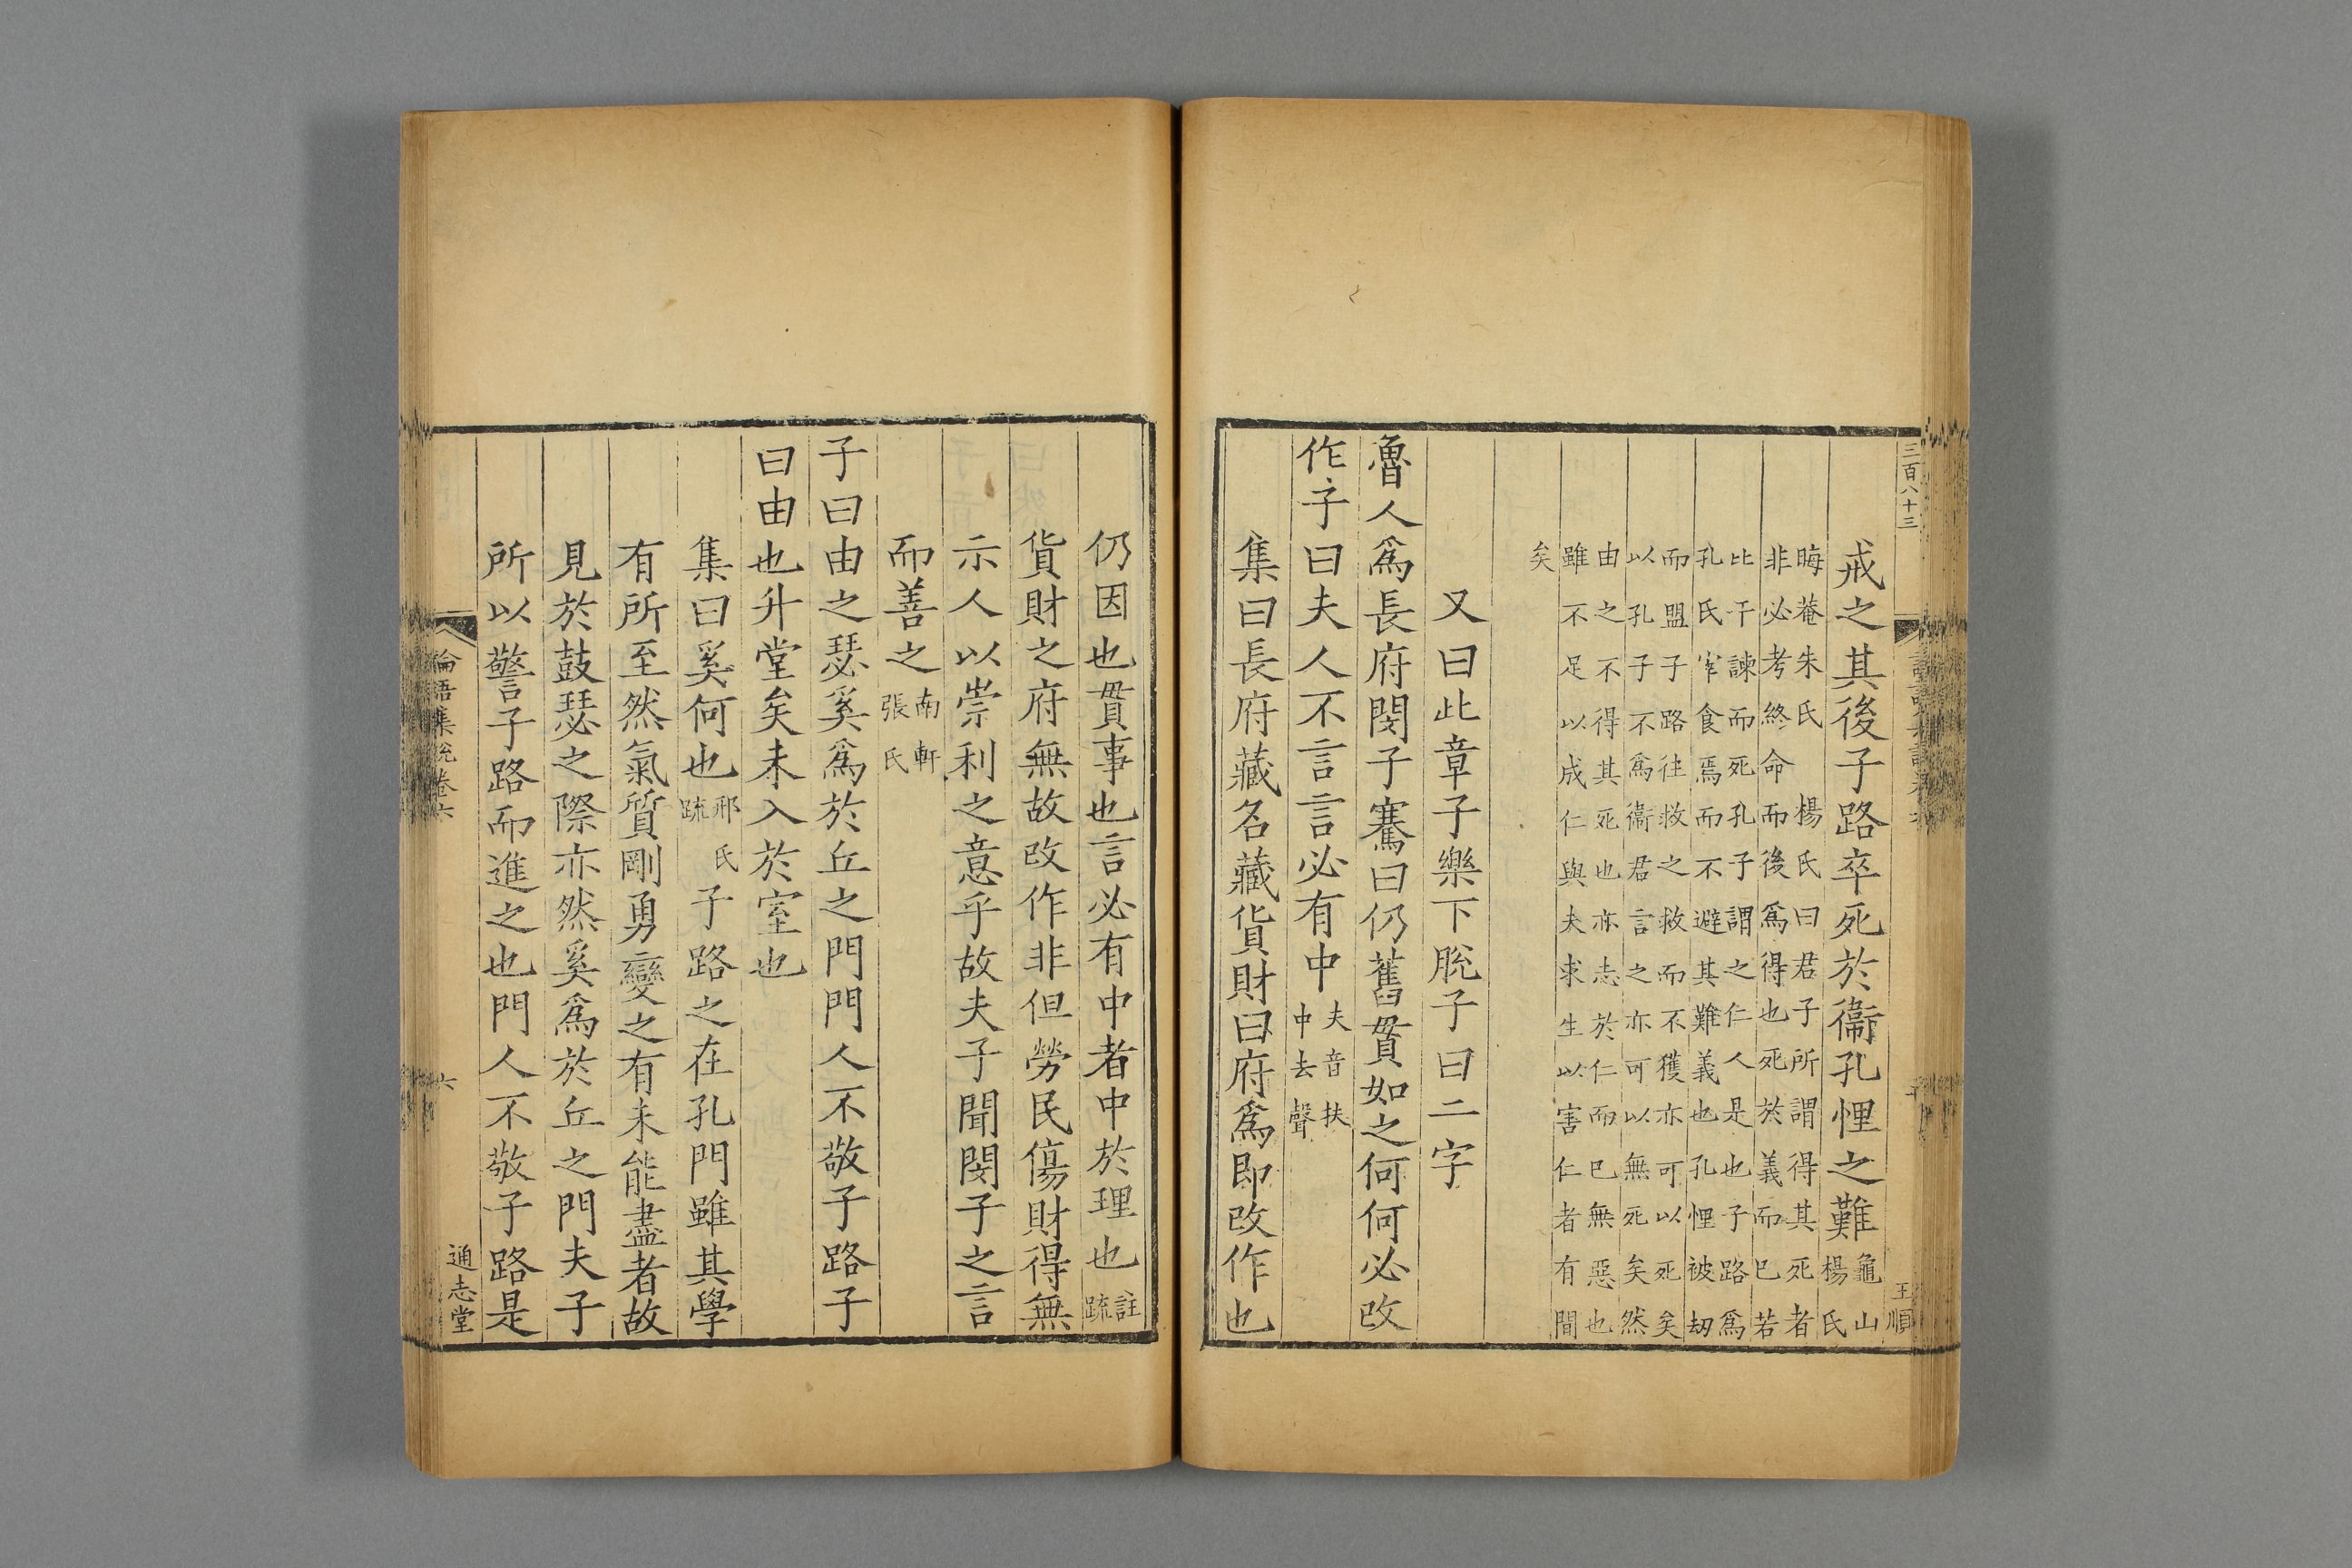 三百八十三
王順
戒之其後子路卒死於衞孔悝之難龜山
楊氏
晦菴朱氏 楊氏曰君子所謂得其死者
非必考終命而後爲得也死於義而已若
比干諫而死孔子謂之仁人是也子路爲
孔氏宰食焉而不避其難義也孔悝被刼
而盟子路往救之救而不獲亦可以死矣
以孔子不爲衞君言之亦可以無死矣然
由之不得其死也亦志於仁而已無惡也
雖不足以成仁與夫求生以害仁者有間
矣
又曰此章子樂下脫子曰二字
魯人爲長府閔子騫曰仍舊貫如之何何必改
作子曰夫人不言言必有中夫音扶
中去聲
集曰長府藏名藏貨財曰府爲即改作也
仍因也貫事也言必有中者中於理也註
疏
貨財之府無故改作非但勞民傷財得無
示人以崇利之意乎故夫子聞閔子之言
而善之南軒
張氏
子曰由之瑟奚爲於丘之門門人不敬子路子
曰由也升堂矣未入於室也
集曰奚何也邢氏
疏
子路之在孔門雖其學
有所至然氣質剛勇變之有未能盡者故
見於鼓瑟之際亦然奚爲於丘之門夫子
所以警子路而進之也門人不敬子路是
論語集說卷六
六
通志堂